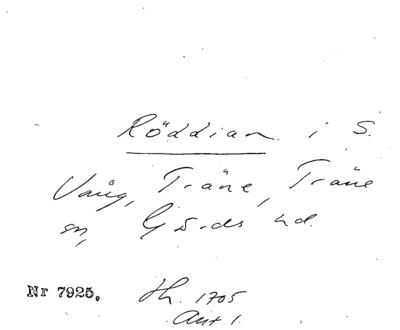 Röddian i S.
Vång, Träne, Träne
sn, Gärds hd.
Nr 7925. Hh. 1705
Akt 1.